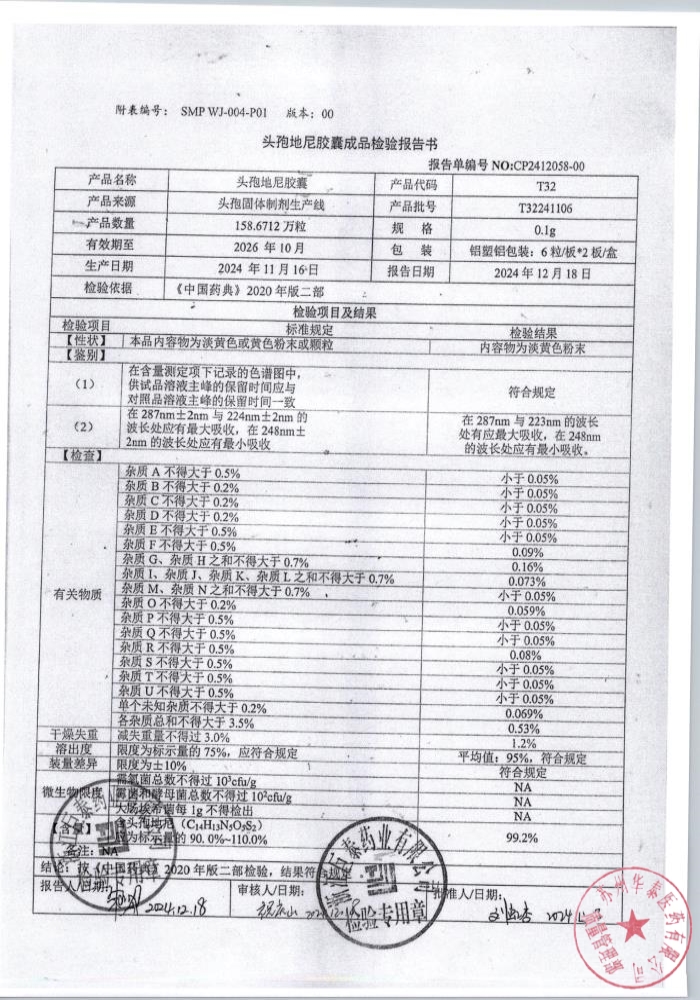 附表编号: SMP WJ-004-P01 版本: 00
头孢地尼胶囊成品检验报告书
报告单编号 NO:CP2412058-00
产品名称 头孢地尼胶囊 产品代码 T32
产品来源 头孢固体制剂生产线 产品批号 T32241106
产品数量 158.6712 万粒 规 格 0.1g
有效期至 2026 年 10 月 包 装 铝塑铝包装: 6 粒/板*2 板/盒
生产日期 2024 年 11 月 16 日 报告日期 2024 年 12 月 18 日
检验依据 《中国药典》2020 年版二部
检验项目及结果
检验项目 标准规定 检验结果
【性状】 本品内容物为淡黄色或黄色粉末或颗粒 内容物为淡黄色粉末
【鉴别】
(1) 在含量测定项下记录的色谱图中,
供试品溶液主峰的保留时间应与
对照品溶液主峰的保留时间一致
符合规定
(2) 在 287nm±2nm 与 224nm±2nm 的
波长处应有最大吸收, 在 248nm±
2nm 的波长处应有最小吸收
在 287nm 与 223nm 的波长
处有应最大吸收, 在 248nm
的波长处应有最小吸收。
【检查】
有关物质
杂质 A 不得大于 0.5% 小于 0.05%
杂质 B 不得大于 0.2% 小于 0.05%
杂质 C 不得大于 0.2% 小于 0.05%
杂质 D 不得大于 0.2% 小于 0.05%
杂质 E 不得大于 0.5% 小于 0.05%
杂质 F 不得大于 0.5% 0.09%
杂质 G、杂质 H 之和不得大于 0.7% 0.16%
杂质 I、杂质 J、杂质 K、杂质 L 之和不得大于 0.7% 0.073%
杂质 M、杂质 N 之和不得大于 0.7% 小于 0.05%
杂质 O 不得大于 0.2% 0.059%
杂质 P 不得大于 0.5% 小于 0.05%
杂质 Q 不得大于 0.5% 小于 0.05%
杂质 R 不得大于 0.5% 0.08%
杂质 S 不得大于 0.5% 小于 0.05%
杂质 T 不得大于 0.5% 小于 0.05%
杂质 U 不得大于 0.5% 小于 0.05%
单个未知杂质不得大于 0.2% 0.069%
各杂质总和不得大于 3.5% 0.53%
干燥失重 减失重量不得过 3.0% 1.2%
溶出度 限度为标示量的 75%, 应符合规定 平均值: 95%, 符合规定
装量差异 限度为±10% 符合规定
微生物限度
需氧菌总数不得过 10³cfu/g NA
霉菌和酵母菌总数不得过 10²cfu/g NA
大肠埃希菌每 1g 不得检出 NA
【含量】 含头孢地尼 (C₁₄H₁₃N₅O₅S₂)
应为标示量的 90.0%~110.0% 99.2%
备注: NA
结论: 依《中国药典》2020 年版二部检验, 结果符合规
报告人/日期: 2024.12.18 审核人/日期: 批准人/日期:
药业有限公司
检验专用章
州华泰医药有限公司